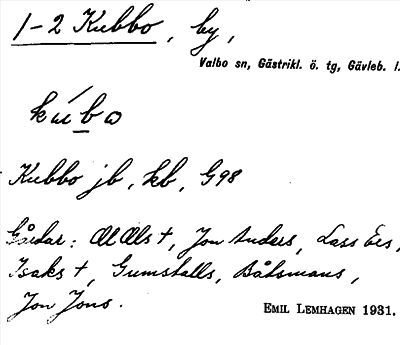 1-2 Kubbo, by,
Valbo sn, Gästrikl. ö. tg, Gävleb. l.
kúbo
Kubbo jb, kb, G98
Gårdar: Ol Ols †, Jon Anders, Lass Ers,
Isaks †, Gumsballs, Båtsmans,
Jon Jons.
EMIL LEMHAGEN 1931.